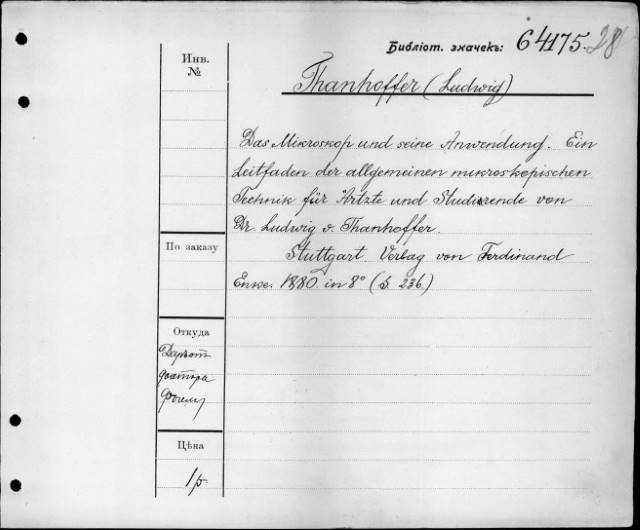 Библіот. значекъ: 64175.28
Инв.
№
Thanhoffer (Ludwig)
Das Mikroskop und seine Anwendung. Ein
Leitfaden der allgemeinen mikroskopischen
Technik für Ärtzte und Studierende von
Dr. Ludwig v. Thanhoffer.
По заказу
Stuttgart. Verlag von Ferdinand
Enke. 1880. in 8° (S. 236.)
Откуда
доктора
Цѣна
1 р.